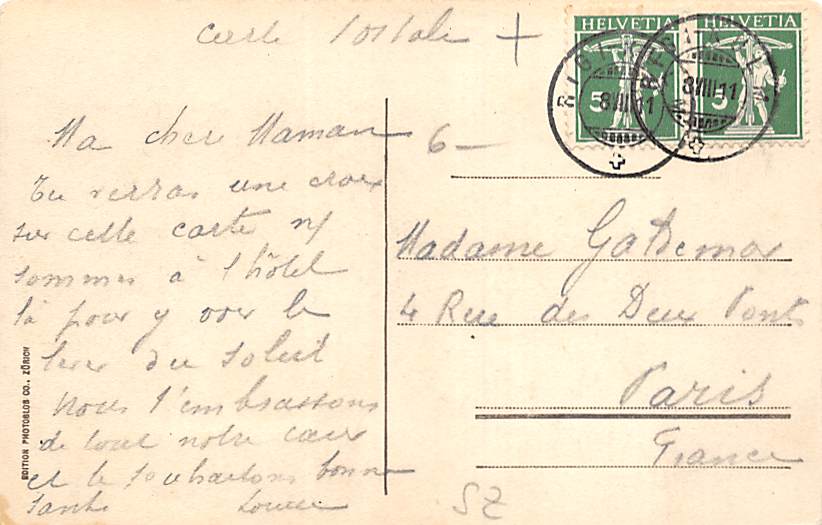 Carte Postale
HELVETIA HELVETIA
5 5
RIGI
8 VIII 11
8 VIII 11
6-
Ma cher Maman
Tu verras une croix
sur cette carte n/
sommes à l'hôtel
là pour y voir le
lever du soleil
Nous t'embrassons
de tout notre cœur
et te souhaitons bonne
santé Louise
Madame
4 Rue des Deux Ponts
Paris
France
SZ
EDITION PHOTOGLOB CO., ZÜRICH